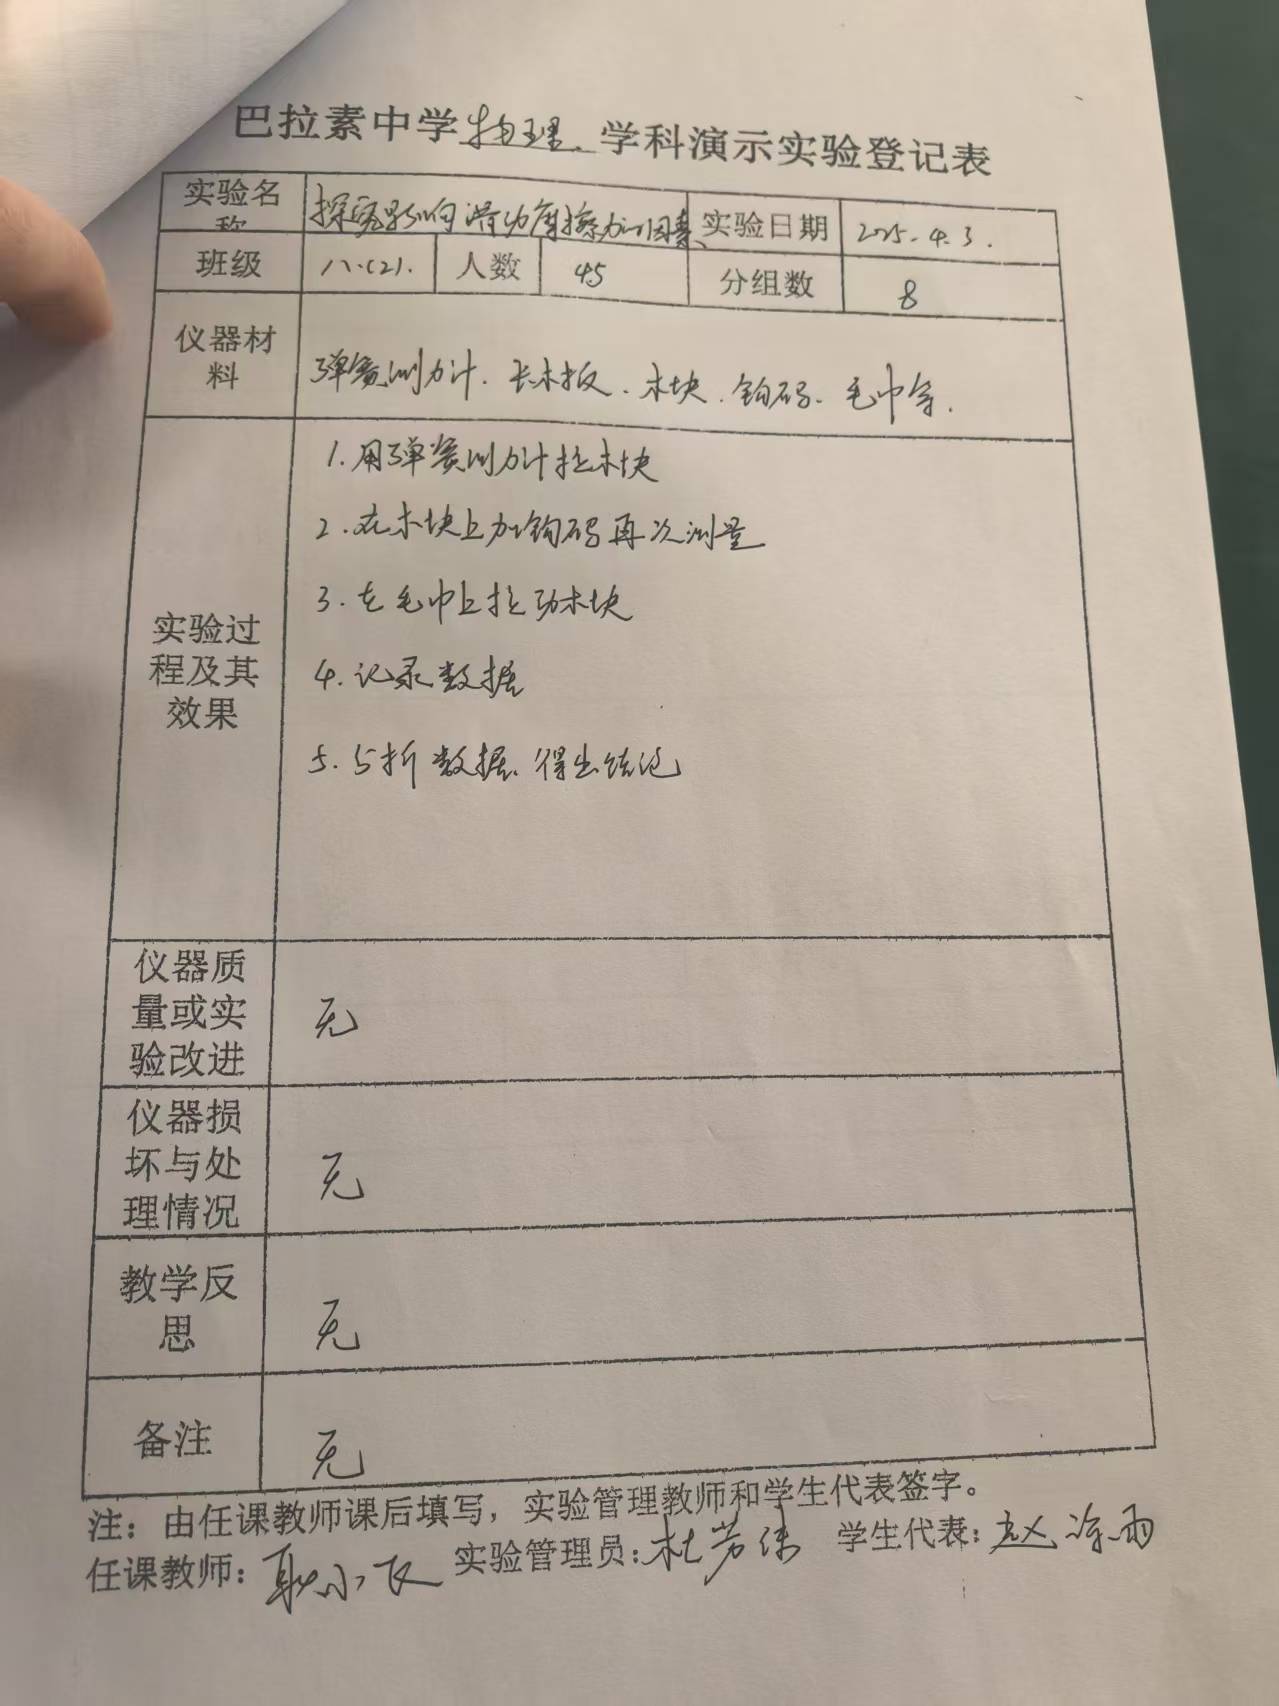 巴拉素中学物理学科演示实验登记表
实验名称 探究影响滑动摩擦力的因素 实验日期 2025.4.3.
班级 八.(2). 人数 45 分组数 8
仪器材料 弹簧测力计、长木板、木块、钩码、毛巾等.
实验过程及其效果
1.用弹簧测力计拉木块
2.在木块上加钩码再次测量
3.在毛巾上拉动木块
4.记录数据
5.分析数据、得出结论
仪器质量或实验改进 无
仪器损坏与处理情况 无
教学反思 无
备注 无
注：由任课教师课后填写，实验管理教师和学生代表签字。
任课教师：耿小 实验管理员：杜芳 学生代表：赵 雨